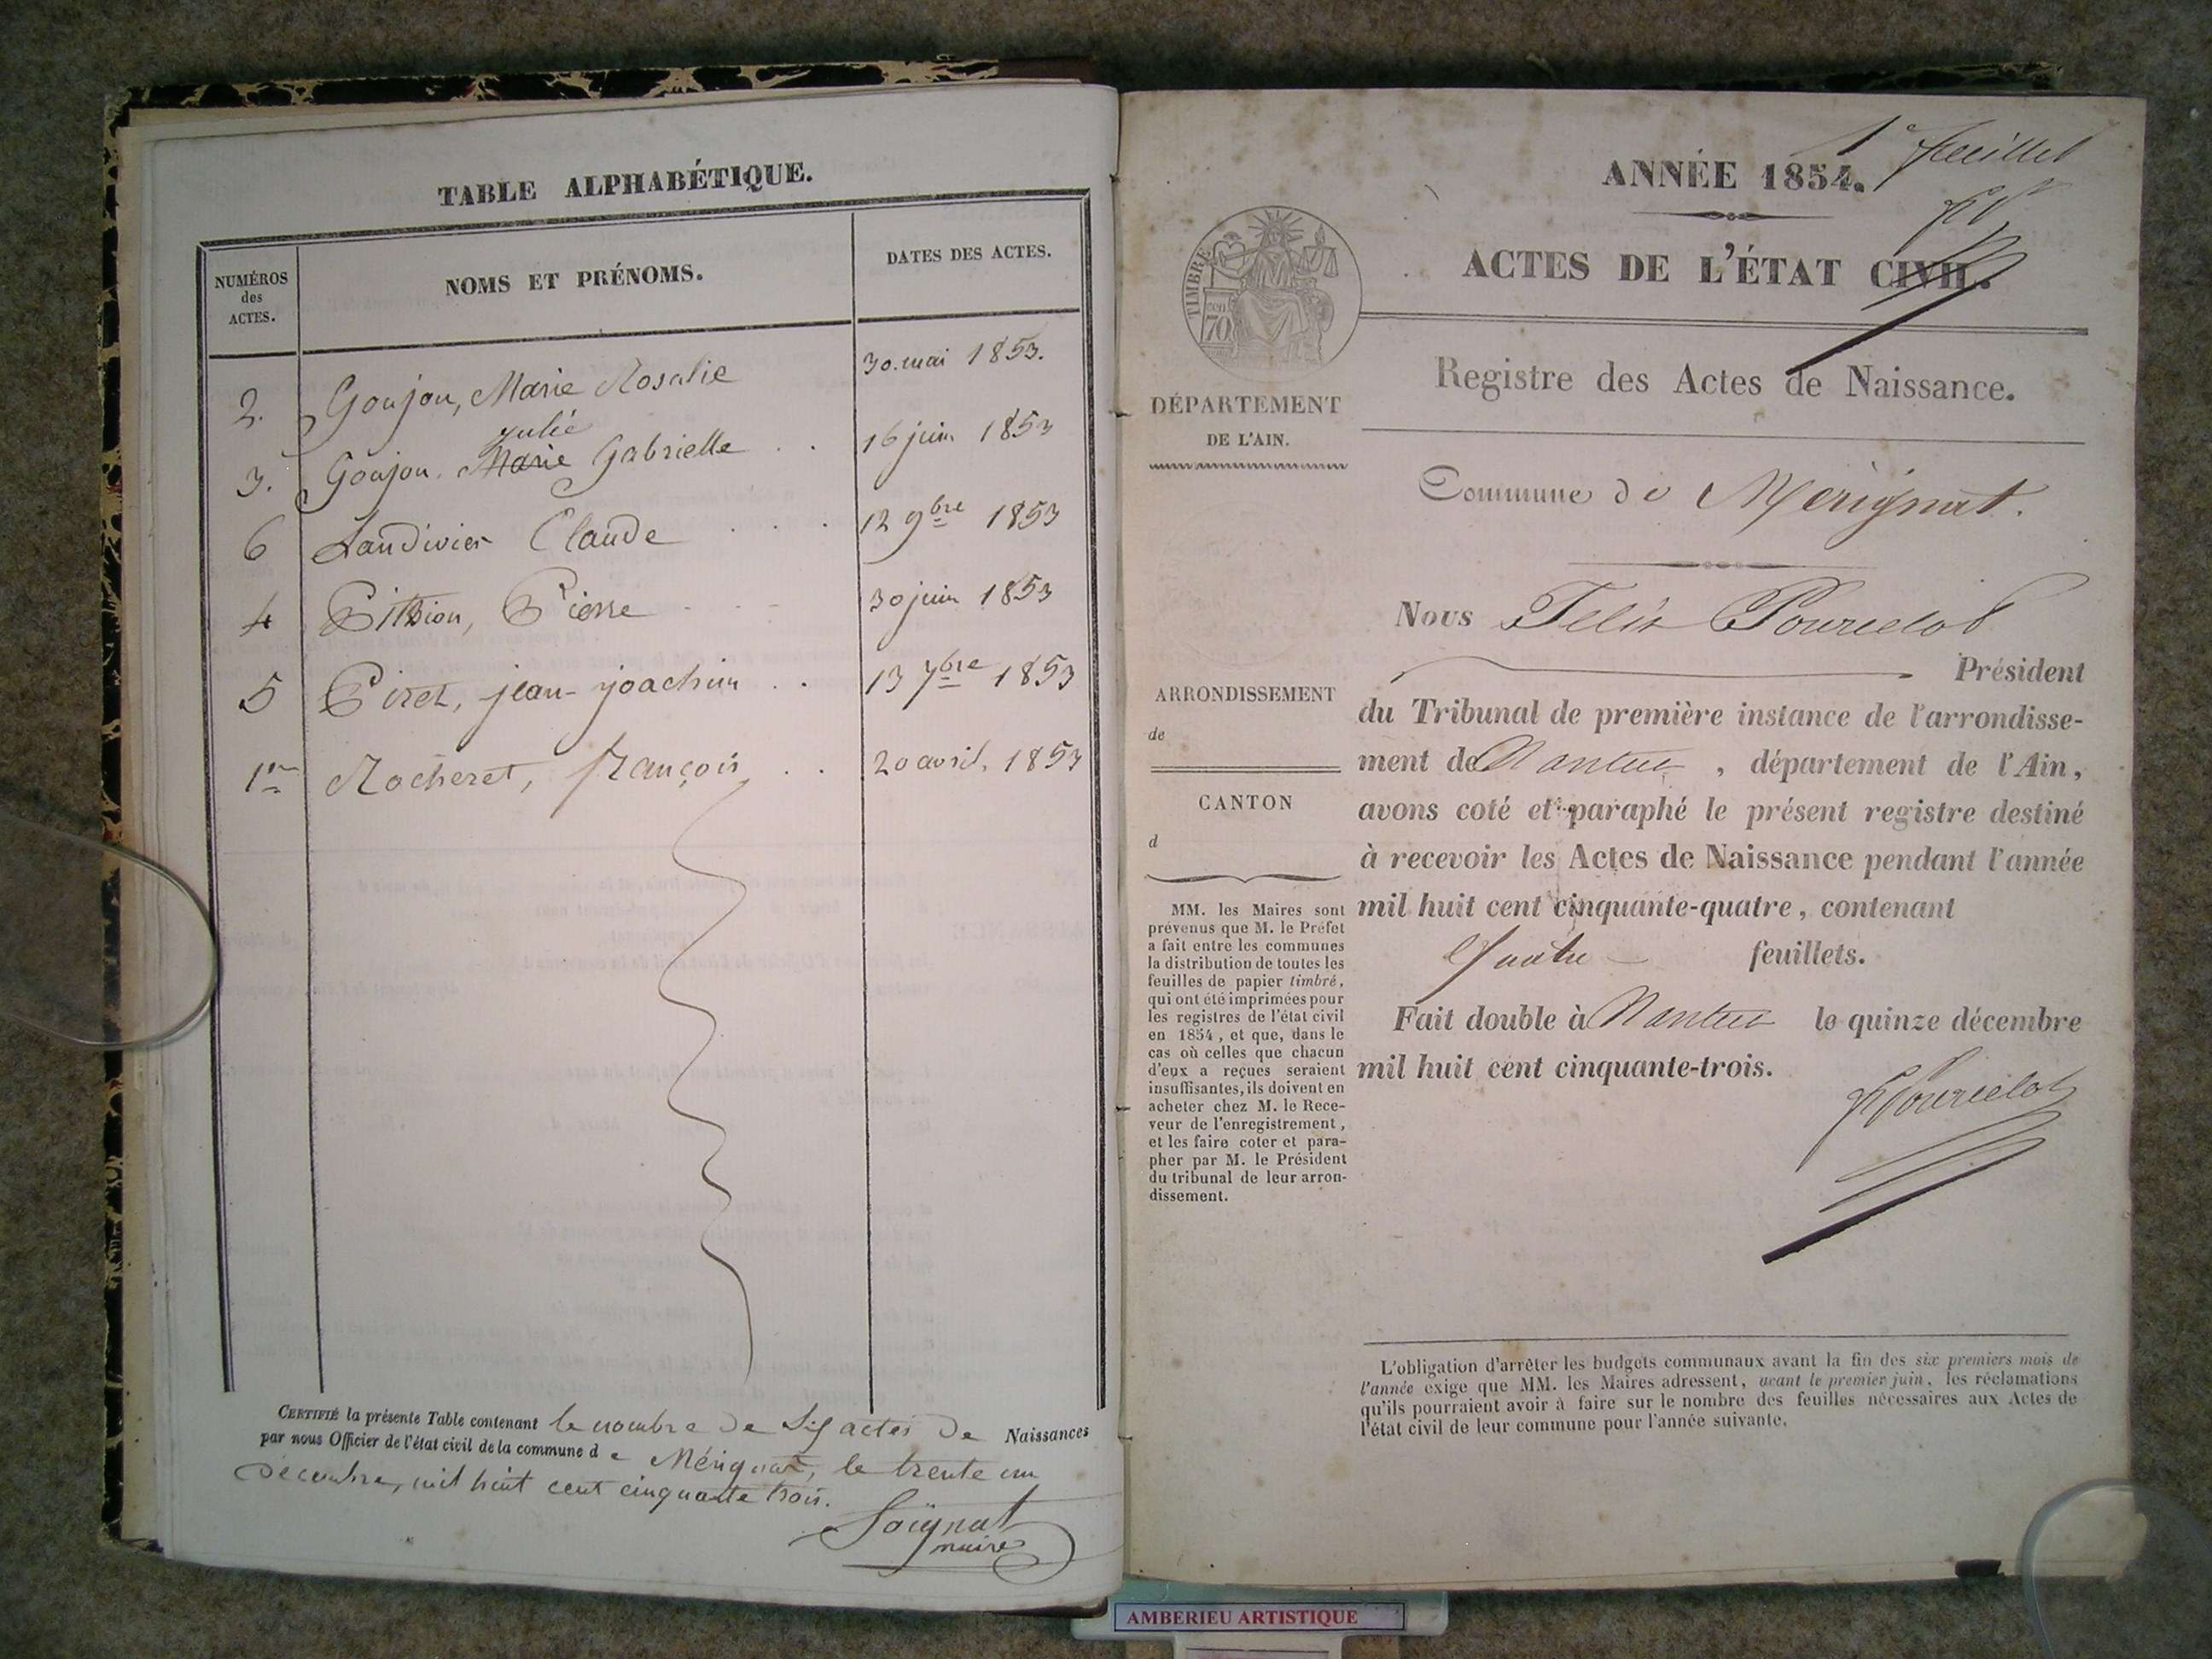 TABLE ALPHABÉTIQUE.
NUMÉROS
des
ACTES.
NOMS ET PRÉNOMS.
DATES DES ACTES.
2. Goujon, Marie Rosalie 30. mai 1853.
Julie
3. Goujon. Marie Gabrielle . . 16 juin 1853
6 Landivier Claude . . . 12 9bre 1853
4 Pithion, Pierre . . - 30 juin 1853
5 Piret, jean-joachim . . 13 7bre 1853
1er Rocheret, françois . . 20 avril. 1853
CERTIFIÉ la présente Table contenant le nombre de Six actes de Naissances
par nous Officier de l'état civil de la commune de Mérignat, le trente un
décembre, mil huit cent cinquante trois.
Soignat
maire
1er feuillet
ANNÉE 1854.
fP
ACTES DE L'ÉTAT CIVIL.
TIMBRE
70
cen
Registre des Actes de Naissance.
DÉPARTEMENT
DE L'AIN.
Commune de Mérignat.
Nous Félix Pourcelot
Président
ARRONDISSEMENT
de
CANTON
d
du Tribunal de première instance de l'arrondisse-
ment de Nantua , département de l'Ain,
avons coté et paraphé le présent registre destiné
à recevoir les Actes de Naissance pendant l'année
mil huit cent cinquante-quatre, contenant
Quatre feuillets.
Fait double à Nantua le quinze décembre
mil huit cent cinquante-trois.
FPourcelot
MM. les Maires sont
prévenus que M. le Préfet
a fait entre les communes
la distribution de toutes les
feuilles de papier timbré,
qui ont été imprimées pour
les registres de l'état civil
en 1854, et que, dans le
cas où celles que chacun
d'eux a reçues seraient
insuffisantes, ils doivent en
acheter chez M. le Rece-
veur de l'enregistrement,
et les faire coter et para-
pher par M. le Président
du tribunal de leur arron-
dissement.
L'obligation d'arrêter les budgets communaux avant la fin des six premiers mois de
l'année exige que MM. les Maires adressent, avant le premier juin, les réclamations
qu'ils pourraient avoir à faire sur le nombre des feuilles nécessaires aux Actes de
l'état civil de leur commune pour l'année suivante.
AMBERIEU ARTISTIQUE